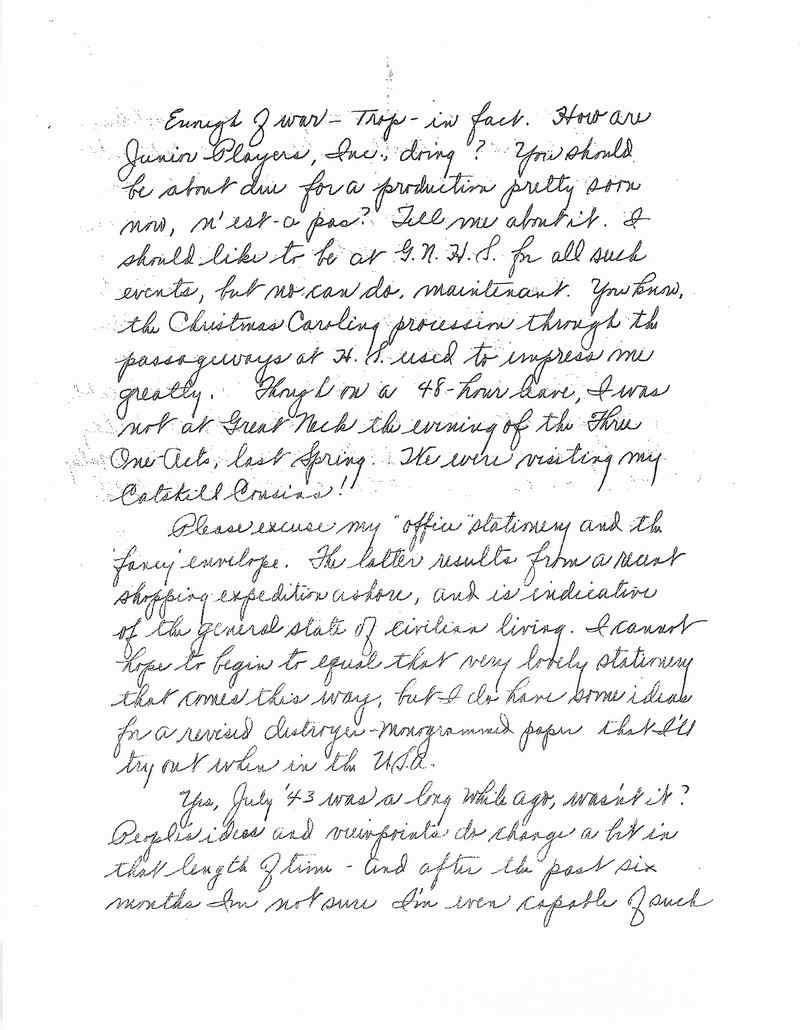 Enough of war - Trop - in fact. How are
Junior Players, Inc., doing? You should
be about due for a production pretty soon
now, n'est-a pas? Tell me about it. I
should like to be at G.N.H.S. for all such
events, but no can do, maintenant. You know,
the Christmas Caroling procession through the
passageways at H.S. used to impress me
greatly. Though on a 48-hour leave, I was
not at Great Neck the evening of the Three
One-Acts, last Spring. We were visiting my
Catskill Cousins!
Please excuse my "office" stationery and the
'fancy' envelope. The latter results from a recent
shopping expedition ashore, and is indicative
of the general state of civilian living. I cannot
hope to begin to equal that very lovely stationery
that comes this way, but I do have some ideas
for a revised destroyer-monogrammed paper that I'll
try out when in the U.S.A.
Yes, July '43 was a long while ago, wasn't it?
People's ideas and viewpoints do change a bit in
that length of time - and after the past six
months I'm not sure I'm even capable of such